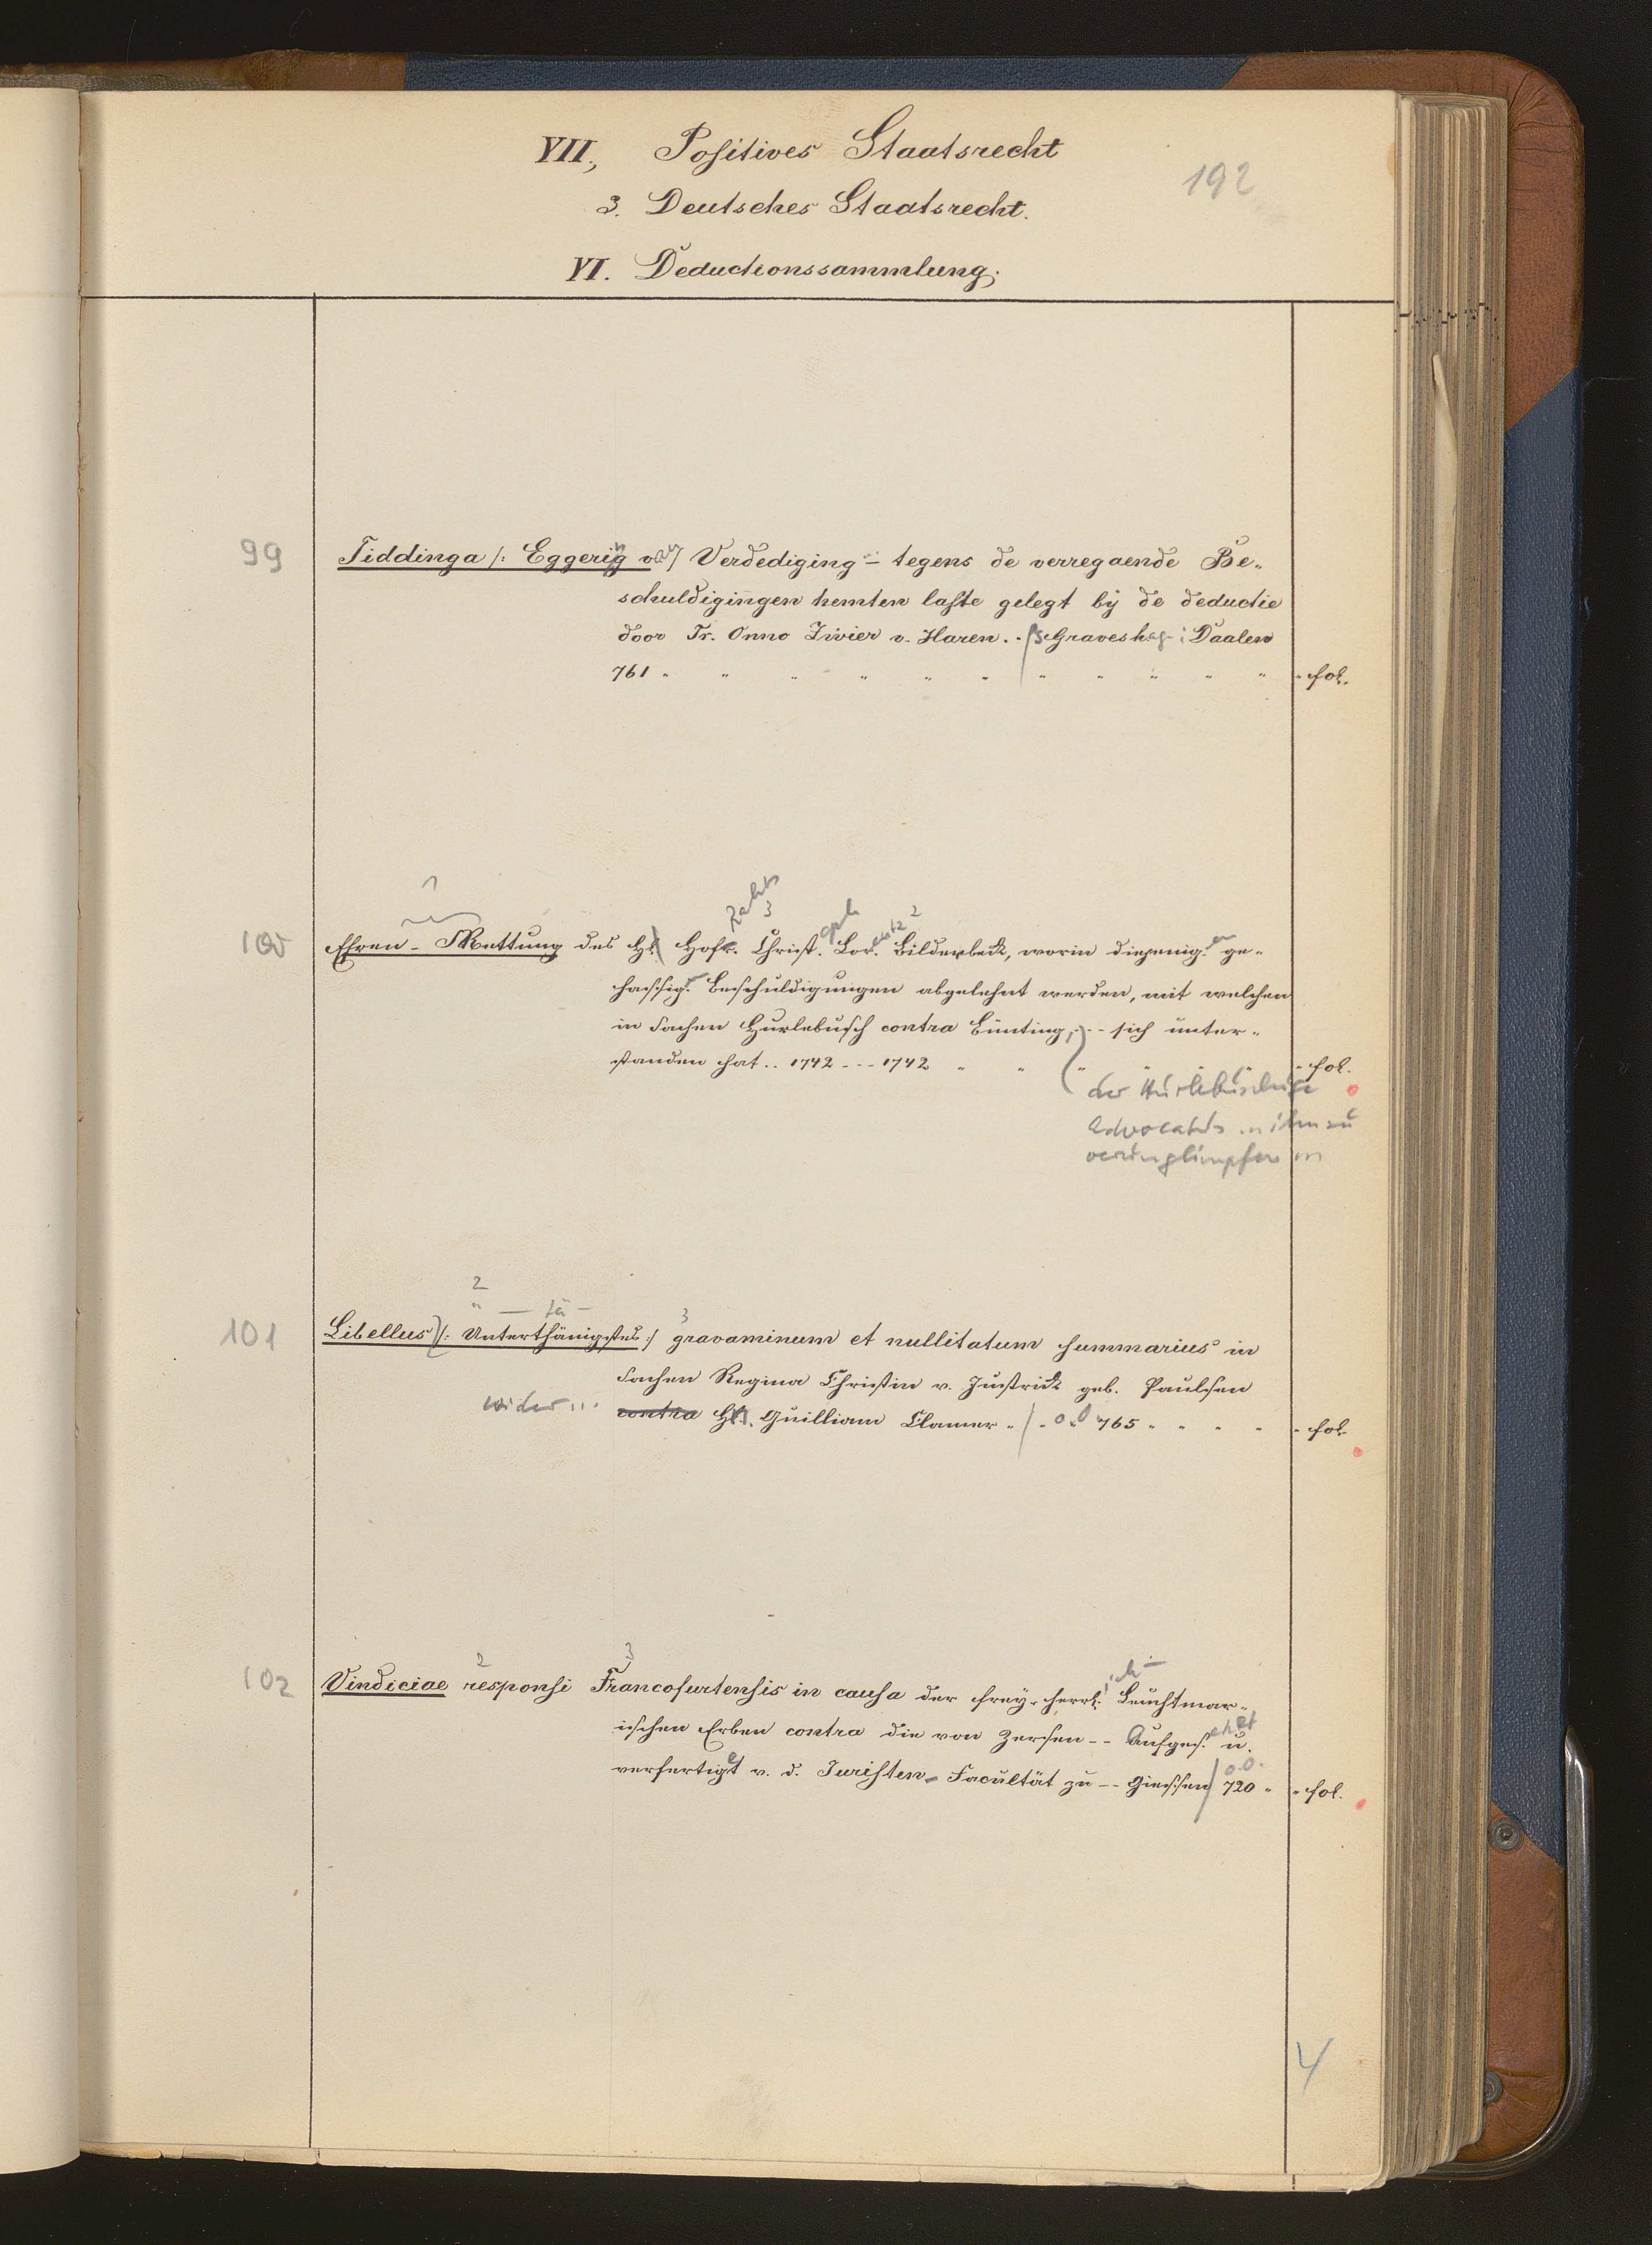 VII, Positives Staatsrecht
192
3. Deutsches Staatsrecht.
VI. Deductionssammlung.
99 Tiddinga /: Eggerig van/ Verdediging - tegens de verregaende Be-
schuldigingen hemten laste gelegt bij de deductie
door Jr. Onno Zwier v. Haren . . / s'Graveshag : Daalen
761 " " " " " " " " " " " fol.
100 Ehren-Rettung des H. Hofr. Christ. Lor. Bilderbeck, worin diejenig. ge-
hässig. Beschuldigungen abgelehnt werden, mit welchen
in Sachen Hurlebusch contra Bünting, - - sich unter-
standen hat . . 1742 - - - 1742 " " " " " " fol.
der Hurlebuschische
Advocatus .. ihn zu
verunglimpfen
101 Libellus /: Unterthänigstes :/ gravaminum et nullitatum summarius in
Sachen Regina Christin v. Justrick geb. Paulsen
wider ... contra H. Guilliam Clamer " / . o. O 765 " " " " fol.
102 Vindiciae responsi Francofurtensis in causa der frey-herrl. Leuchtmar-
ischen Erben contra die von Zersen - - Aufges. u.
verfertigt v. d. Juristen-Facultät zu - - Giessen / o.O. 720 " " fol.
4